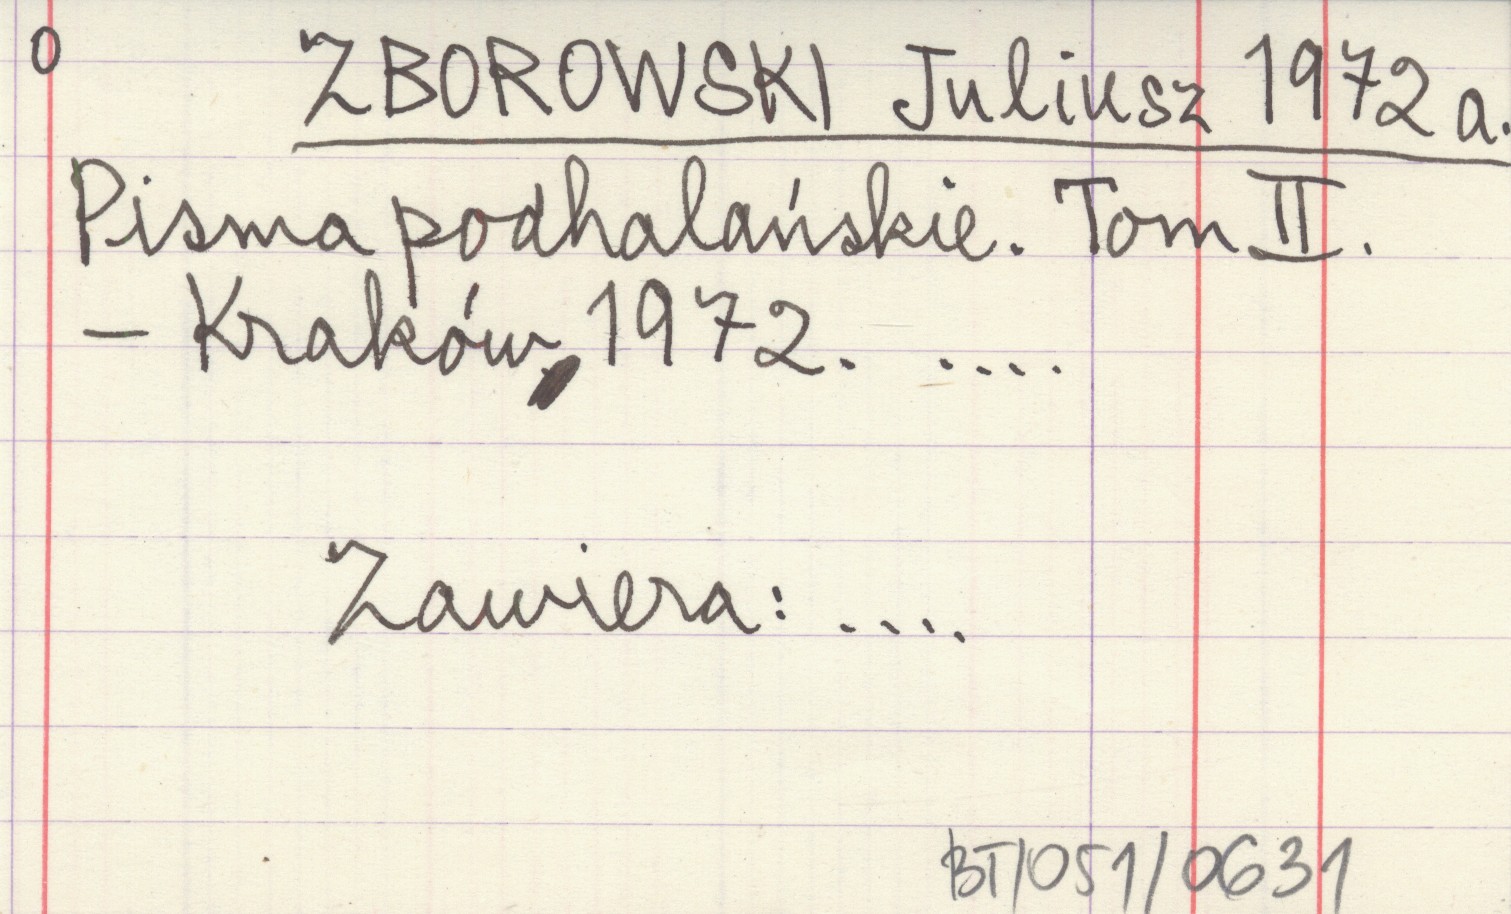 0 ZBOROWSKI Juliusz 1972 a.
Pisma podhalańskie. Tom II.
– Kraków, 1972. ....
Zawiera: ....
BT/051/0631